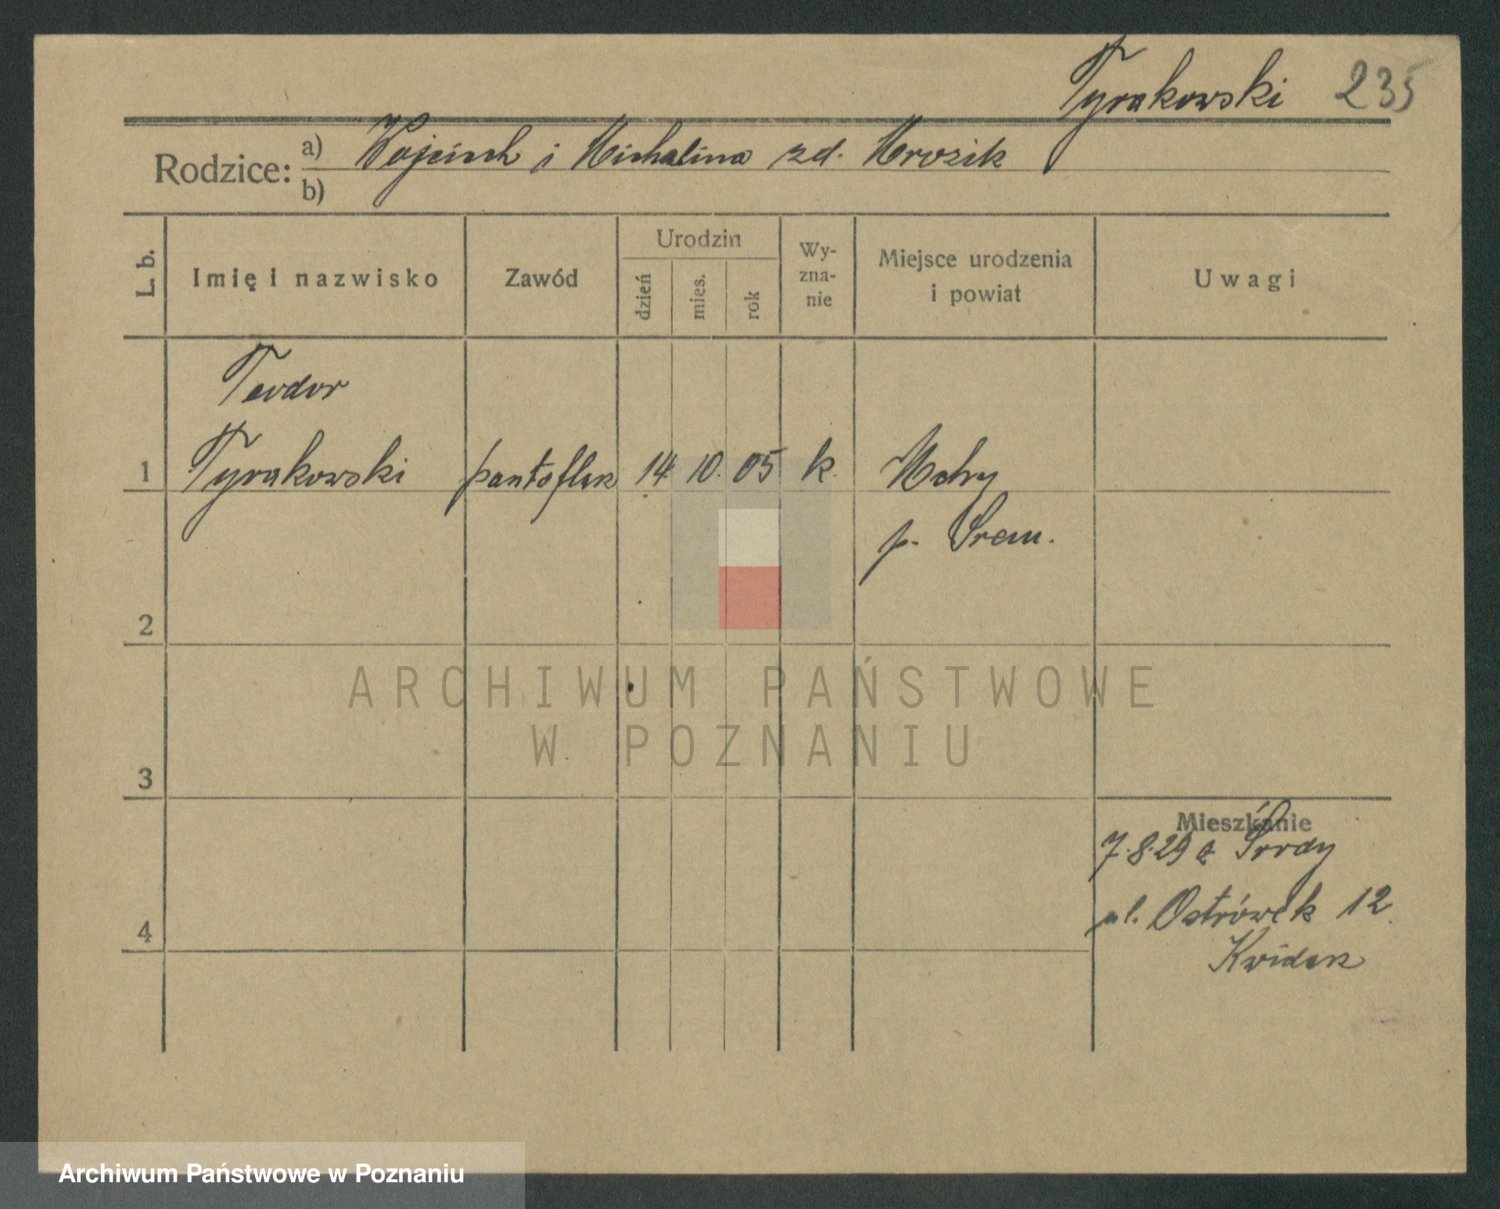 Tyrakowski 235
Rodzice: a) Wojciech i Michalina zd. Mrozik
b)
L. b.
Imię i nazwisko
Zawód
Urodzin
dzień
mies.
rok
Wy-
zna-
nie
Miejsce urodzenia
i powiat
Uwagi
Teodor
1 Tyrakowski pantoflarz 14. 10. 05 k. Mchy
p. Śrem.
2
3
Mieszkanie
7.8.29 z Środy
ul. Ostrówek 12
4
ARCHIWUM PAŃSTWOWE
W POZNANIU
Archiwum Państwowe w Poznaniu